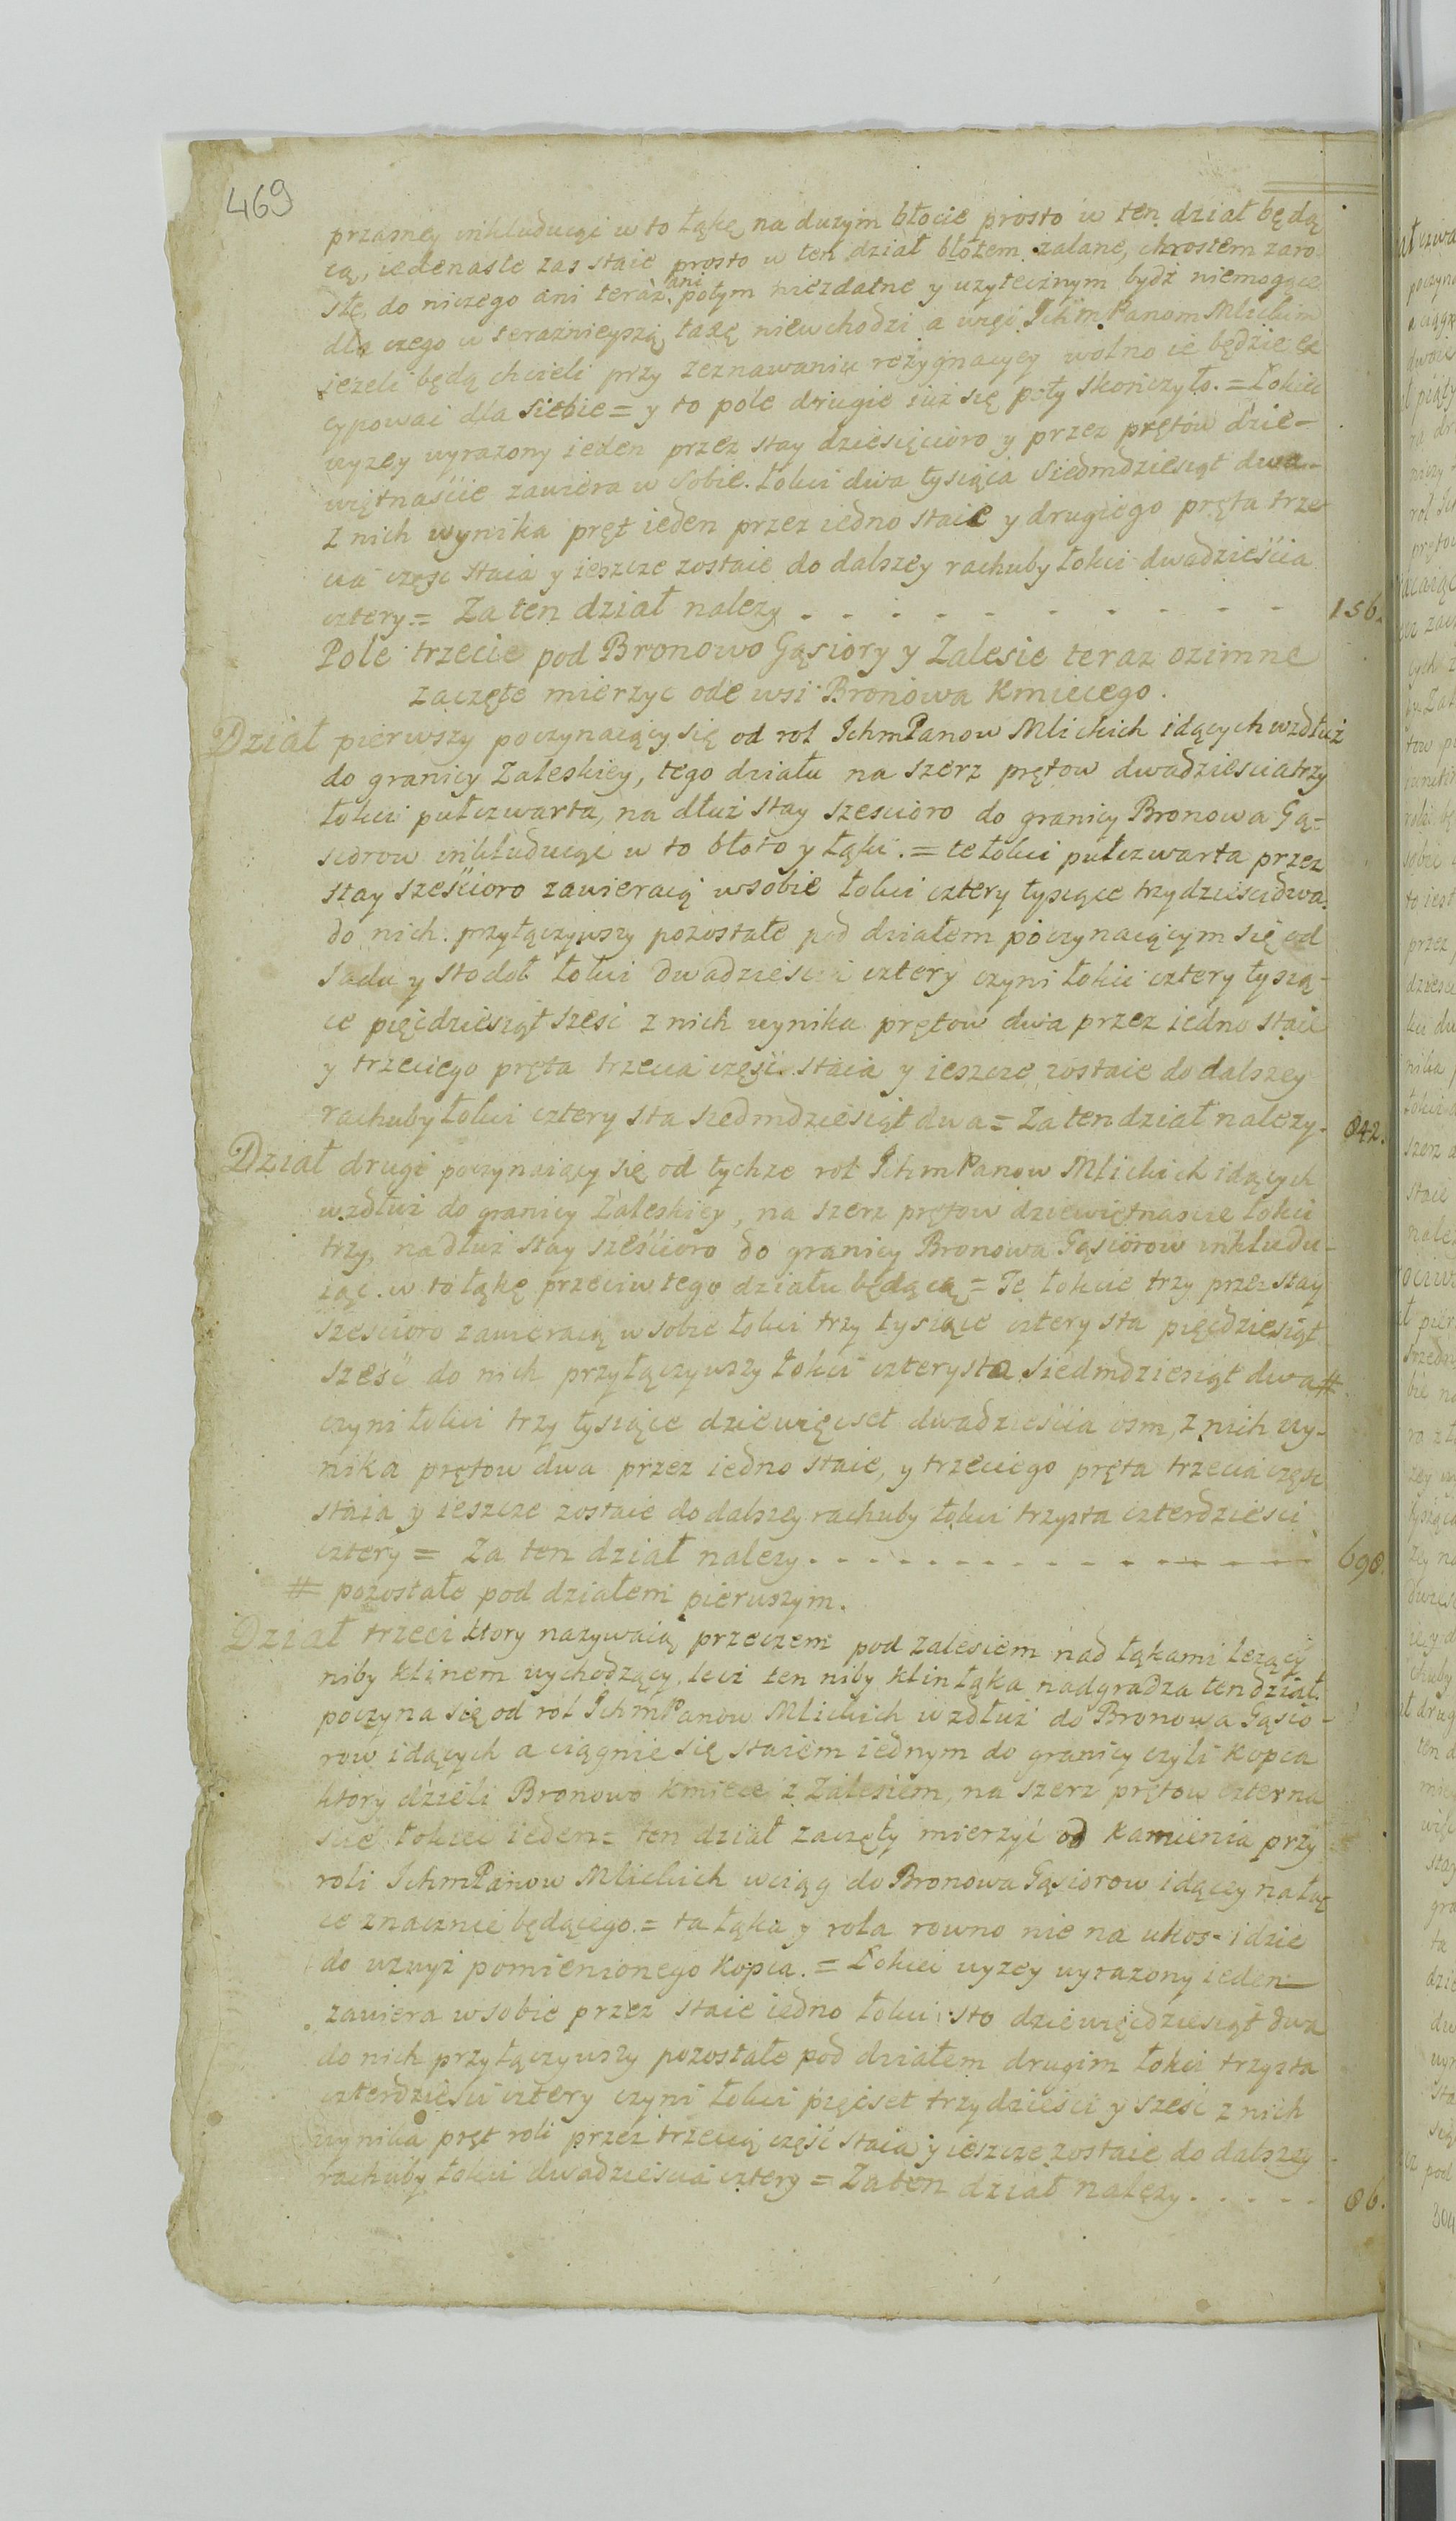 469
przasney inkluduiąc w to łąkę na dużym błocie prosto w ten dział będą
cą, iedenaste zas staie prosto w ten dział błotem zalane, chrostem zaro
słe, do niczego ani teraz ani potym niezdatne y uzytecznym bydź niemogące
dla czego w teraznieyszą taxę niewchodzi a więc Ichm Panom Mlickim
iezeli będą chcieli przy zeznawaniu rezygnacyey wolno ie będzie ex
cypować dla siebie = y to pole drugie iuż się poty skończyło. = Łokieć
wyzey wyrazony ieden przez stay dziesięcioro y przez prętów dzie-
więtnaście zawiera w sobie. łokci dwa tysiąca siedmdziesiąt dwa-
z nich wynika pręt ieden przez iedno staie y drugiego pręta trze
cia częsc staia y ieszcze zostaie do dalszey rachuby łokci dwadzieścia
cztery = Za ten dział nalezy . - . - - - - - - - - 156.
Pole trzecie pod Bronowo Gąsiory y Zalesie teraz ozimne
zaczęte mierzyc ode wsi Bronowa Kmiecego.
Dział pierwszy poczynaiący się od rol Ichm Panow Mlickich idących wzdłuż
do granicy Zaleskiey, tego działu na szerz prętow dwadziesciatrzy
łokci pułczwarta, na dłuż stay sześcioro do granicy Bronowa Gą=
siorow inkluduiąc w to błoto y łąki. = te łokci pułczwarta przez
stay sześcioro zawieraią wsobie łokci cztery tysiące trzydzieścidwa.
do nich. przyłączywszy pozostałe pod działem poczynaiącym się od
Sadu y stodoł łokci dwadzieścia cztery czyni łokci cztery tysią-
ce pięćdziesiąt sześc z nich wynika prętow dwa przez iedno staie
y trzeciego pręta trzecia częśc staia y ieszcze zostaie do dalszey
rachuby łokci cztery sta siedmdziesiąt dwa = Za ten dział nalezy. 842.
Dział drugi poczynaiący się od tychze rol Ichm Panow Mlickich idących
wzdłuż do granicy Zaleskiey, na szerz prętow dziewiętnascie łokci
trzy, nadłuż stay sześcioro do granicy Bronowa Gąsiorow inkludu-
iąc. w to łąkę przeciw tego działu będącą = Te łokcie trzy przez stay
sześcioro zawieraią w sobie łokci trzy tysiące cztery sta pięćdziesiąt
sześć do nich przyłączywszy łokci czterysta siedmdziesiąt dwa #
czyni łokci trzy tysiące dziewięcset dwadzieścia osm, z nich wy-
nika prętow dwa przez iedno staie, y trzeciego pręta trzecia częsc
staia y ieszcze zostaie do dalszey rachuby łokci trzysta czterdziesci
cztery = Za ten dział nalezy. - - - - - - - - - - - 698.
# pozostałe pod działem pierwszym.
Dział trzeci ktory nazywaią przeczem pod zalesiem nad łąkami lezący
niby klinem wychodzący, lecz ten niby klin łąka nadgradza ten dział
poczyna się od rol Ichm Panow Mlickich wzdłuż do Bronowa Gąsio-
row idących a ciągnie się staiem iednym do granicy czyli kopca
ktory dzieli Bronowo Kmiece z Zalesiem, na szerz prętow czterna
ście łokiec ieden = ten dział zaczęty mierzyć od kamienia przy
roli Ichm Panow Mlickich wciąg do Bronowa Gąsiorow idącey na łą
ce znacznie będącego. = ta łąka y rola rowno nie na ukos = idzie
do wzwyż pomienionego kopca. = Łokieć wyzey wyrazony ieden
zawiera wsobie przez staie iedno łokci sto dziewięćdziesiąt dwa
do nich przyłączywszy pozostałe pod działem drugim łokci trzysta
czterdzieści cztery czyni łokci pięćset trzydzieści y sześć z nich
wynika pręt roli przez trzecią część staia y ieszcze zostaie do dalszey
rachuby łokci dwadzieścia cztery = Za ten dział nalezy. . . . . 86.